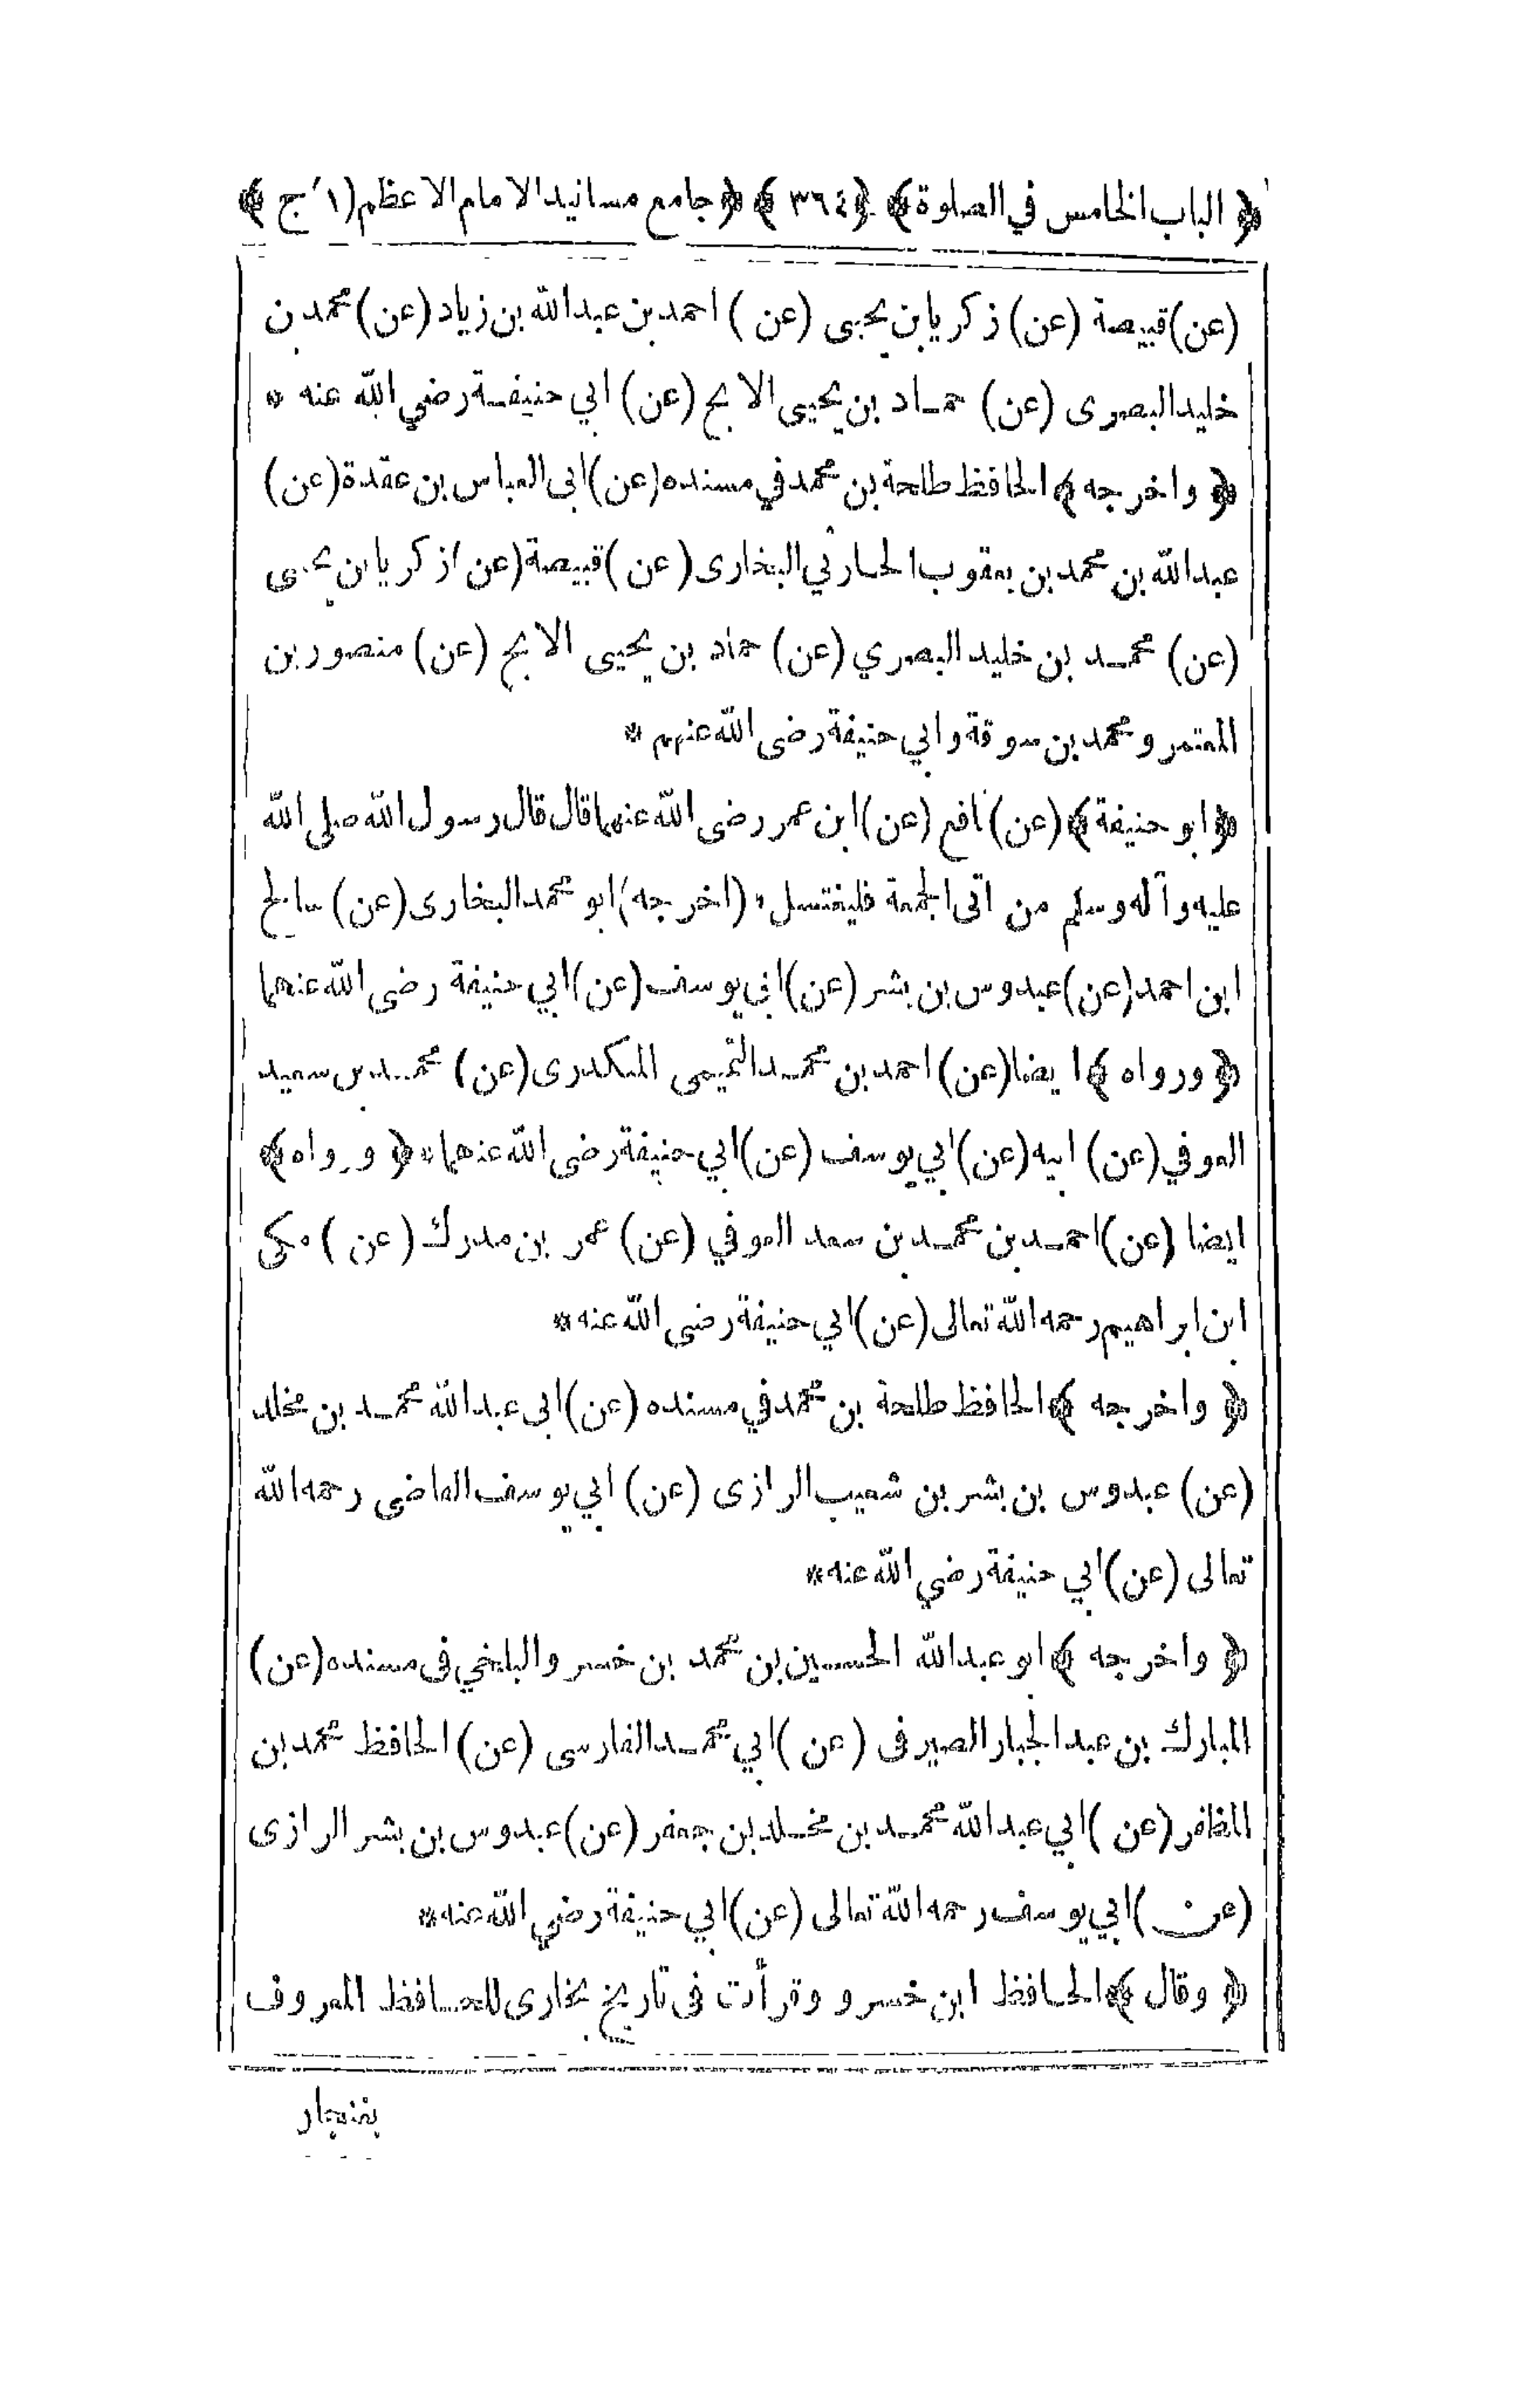 ﴿ الباب الخامس في الصلوة ﴾ ﴿ ٣٦٤ ﴾ ﴿ جامع مسانيد الامام الاعظم (ج ١) ﴾
(عن) قبيصة (عن) زكريا بن يحيى (عن) احمد بن عبد الله بن زياد (عن) محمد بن
خليد البصرى (عن) حماد بن يحيى الابح (عن) ابي حنيفة رضي الله عنه *
﴿ واخرجه ﴾ الحافظ طلحة بن محمد في مسنده (عن) ابى العباس بن عقدة (عن)
عبد الله بن محمد بن يعقوب الحارثي البخارى (عن) قبيصة (عن) زكريا بن يحيى
(عن) محمد بن خليد البصري (عن) حماد بن يحيى الابح (عن) منصور بن
المعتمر ومحمد بن سوقة وابي حنيفة رضى الله عنهم *
﴿ ابو حنيفة ﴾ (عن) نافع (عن) ابن عمر رضى الله عنهما قال قال رسول الله صلى الله
عليه وآله وسلم من اتى الجمعة فليغتسل * (اخرجه) ابو محمد البخارى (عن) صالح
ابن احمد (عن) عبدوس بن بشر (عن) ابي يوسف (عن) ابي حنيفة رضى الله عنهما
﴿ ورواه ﴾ ايضا (عن) احمد بن محمد التميمى المكدرى (عن) محمد بن سعيد
العوفي (عن) ابيه (عن) ابي يوسف (عن) ابي حنيفة رضى الله عنهما * ﴿ ورواه ﴾
ايضا (عن) احمد بن محمد بن سعد العوفي (عن) عمر بن مدرك (عن) مكى
ابن ابراهيم رحمه الله تعالى (عن) ابي حنيفة رضى الله عنه *
﴿ واخرجه ﴾ الحافظ طلحة بن محمد في مسنده (عن) ابى عبد الله محمد بن مخلد
(عن) عبدوس بن بشر بن شعيب الرازى (عن) ابي يوسف القاضى رحمه الله
تعالى (عن) ابي حنيفة رضي الله عنه *
﴿ واخرجه ﴾ ابو عبد الله الحسين بن محمد بن خسرو البلخي فى مسنده (عن)
المبارك بن عبد الجبار الصيرفى (عن) ابي محمد الفارسى (عن) الحافظ محمد بن
المظفر (عن) ابي عبد الله محمد بن مخلد بن جعفر (عن) عبدوس بن بشر الرازى
(عن) ابي يوسف رحمه الله تعالى (عن) ابي حنيفة رضي الله عنه *
﴿ وقال ﴾ الحافظ ابن خسرو وقرأت فى تاريخ بخارى للحافظ المعروف
بغنجار